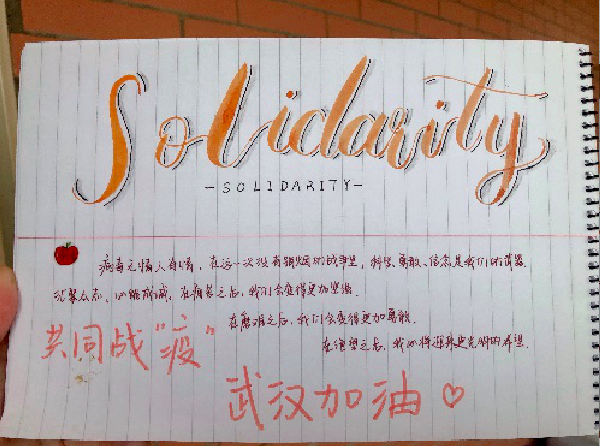 Solidarity
-SOLIDARITY-
病毒无情人有情,在这一次没有硝烟的战争里,科学、勇敢、信念是我们的武器.
万众众志,必能成城,在拥挤之后,我们会变得更加坚强.
在磨难之后,我们会变得更加勇敢.
在绝望之后,我们将迎来更光明的希望.
共同战"疫"
武汉加油♡